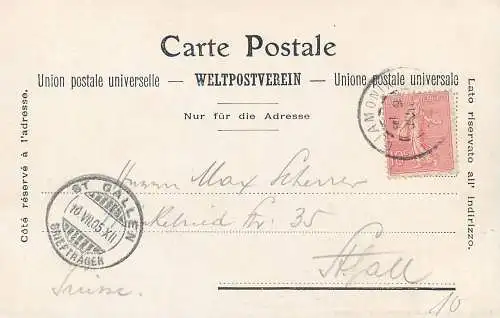 Carte Postale
Union postale universelle — WELTPOSTVEREIN — Unione postale universale
Nur für die Adresse
Côté réservé à l'adresse.
Lato riservato all' indirizzo.
AMONI
10
Herrn Max Scherrer
Str. 35
St. Gall
Suisse.
ST. GALLEN
10.VII.05.XII
BRIEFTRÄGER
10